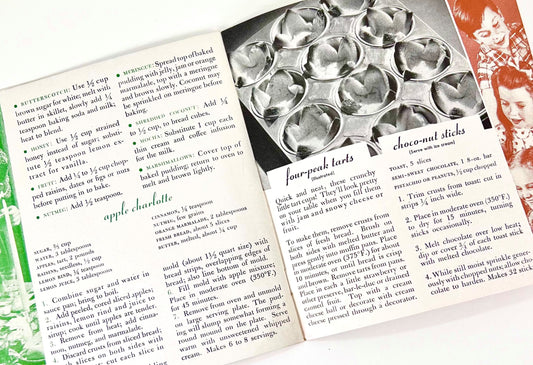 • BUTTERSCOTCH: Use ½ cup
brown sugar for white; melt with
butter in skillet, slowly add ¼
teaspoon baking soda and milk,
heat to blend.
• HONEY: Use ½ cup strained
honey instead of sugar; substi-
tute ½ teaspoon lemon ex-
tract for vanilla.
• FRUIT: Add ¼ to ½ cup chop-
ped raisins, dates or figs or nuts
before putting in to bake.
• NUTMEG: Add ½ teaspoon.
• MERINGUE: Spread top of baked
pudding with jelly, jam or orange
marmalade, top with a meringue
and brown slightly. Coconut may
be sprinkled on meringue before
baking.
• SHREDDED COCONUT: Add ¼
to ½ cup, to bread cubes.
• MOCHA: Substitute 1 cup each
thin cream and coffee infusion
for the milk.
• MARSHMALLOWS: Cover top of
baked pudding; return to oven to
melt and brown lightly.
apple charlotte
SUGAR, ½ cup
WATER, 3 tablespoons
APPLES, 2 pounds
RAISINS, seedless, ½ cup
LEMON RIND, ½ teaspoon
LEMON JUICE, 3 tablespoons
CINNAMON, ¼ teaspoon
NUTMEG, few grains
ORANGE MARMALADE, 2 tablespoons
FRESH BREAD, about 5 slices
BUTTER, melted, about ¼ cup
1. Combine sugar and water in
sauce pan; bring to boil.
2. Add peeled, cored sliced apples;
raisins, lemon rind and juice to
syrup; cook until apples are tender.
3. Remove from heat; add cinna-
mon, nutmeg and marmalade.
4. Discard crusts from sliced bread;
both sides with
cut each slice in
mold (about 1½ quart size) with
bread strips, overlapping edges of
bread; also line bottom of mold.
6. Fill mold with apple mixture.
Place in moderate oven (350°F.)
for 45 minutes.
7. Remove from oven and unmold
on large serving plate. The pud-
ding will slump somewhat forming a
round mound on the plate. Serve
warm with unsweetened whipped
cream. Makes 6 to 8 servings.
four-peak tarts
(Illustrated)
Quick and neat, these crunchy
little tart cups! They'll look pretty
on your table when you fill them
with jam and snowy cheese or
fruit!
To make them, remove crusts from
slices of fresh bread. Brush on
both sides with melted butter and
press gently into muffin pans. Place
in moderate oven (375°F.) for about
10 minutes, or until bread is crisp
and brown. Remove tarts from pans.
Place in each a little strawberry or
other preserve, bar-le-duc or drained
canned fruit. Top with a cream
cheese ball or decorate with cream
cheese pressed through a decorator.
choco-nut sticks
(Serve with ice cream)
TOAST, 5 slices
SEMI-SWEET CHOCOLATE, 1 8-oz. bar
PISTACHIO OR PEANUTS, ½ cup chopped
1. Trim crusts from toast; cut in
strips ¾ inch wide.
2. Place in moderate oven (350°F.)
to dry for 15 minutes, turning
sticks occasionally.
3. Melt chocolate over low heat;
dip or cover ⅔ of each toast stick
with melted chocolate.
4. While still moist sprinkle gener-
ously with chopped nuts; allow choc-
olate to harden. Makes 32 stick